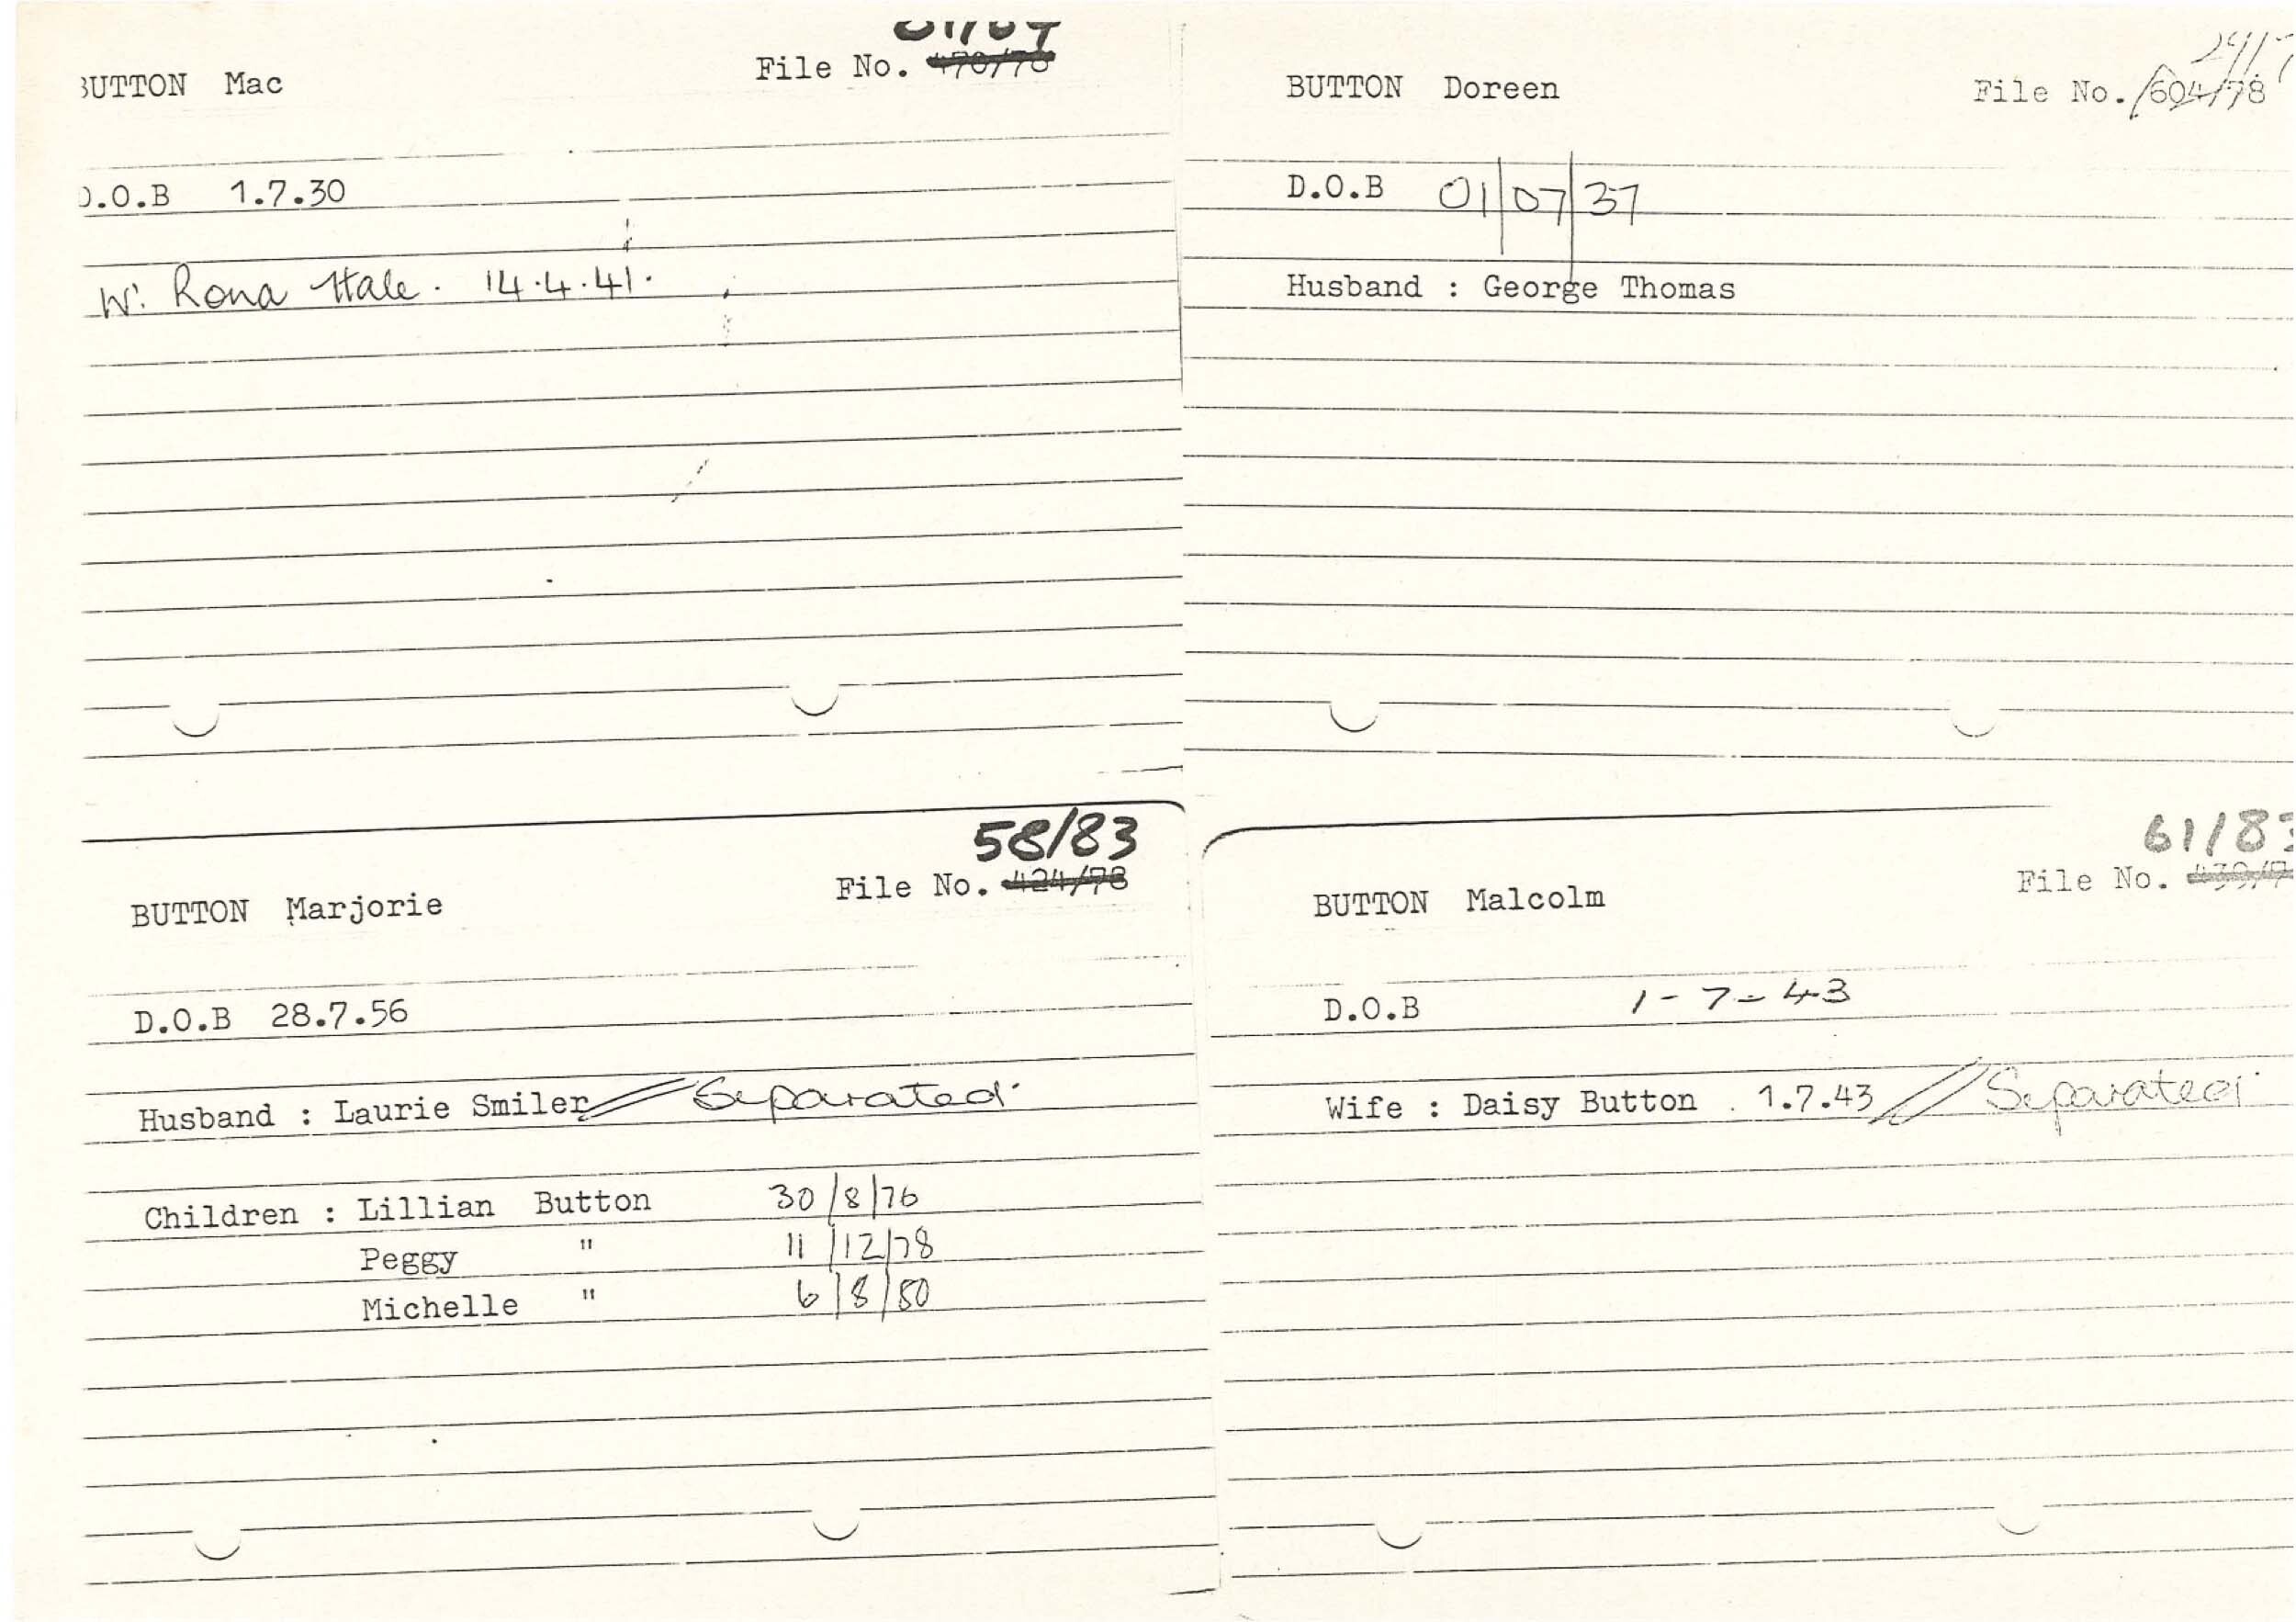 BUTTON Mac
File No.
D.O.B 1.7.30
W. Rona Hale. 14.4.41.
BUTTON Doreen
File No. 604/78
D.O.B 01/07/37
Husband : George Thomas
58/83
BUTTON Marjorie
File No. 424/78
D.O.B 28.7.56
Husband : Laurie Smiler // Separated.
Children : Lillian Button 30/8/76
Peggy " 11/12/78
Michelle " 6/8/80
61/83
BUTTON Malcolm
File No.
D.O.B 1-7-43
Wife : Daisy Button 1.7.43 // Separated.